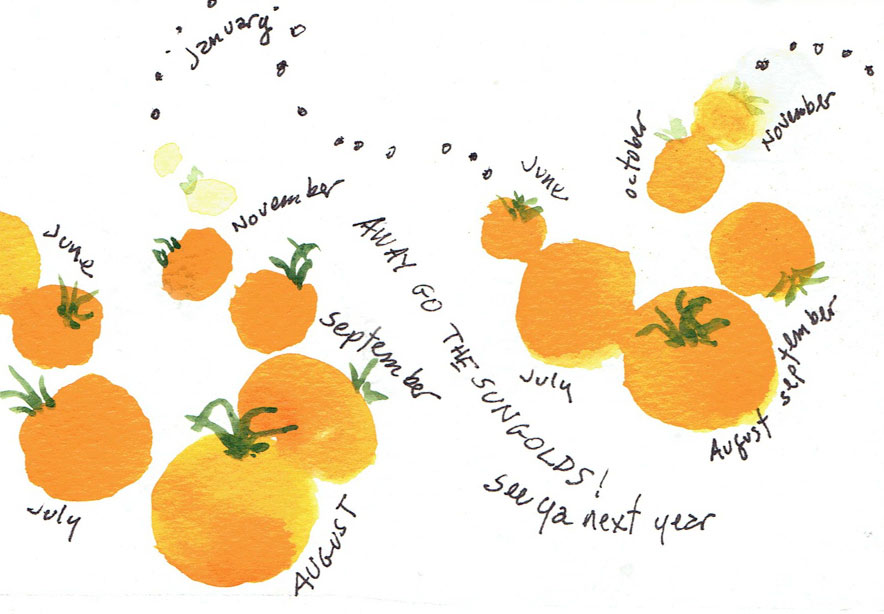 January
June
November
September
July
AUGUST
AWAY GO THE SUNGOLDS!
see ya next year
June
July
August
september
october
November